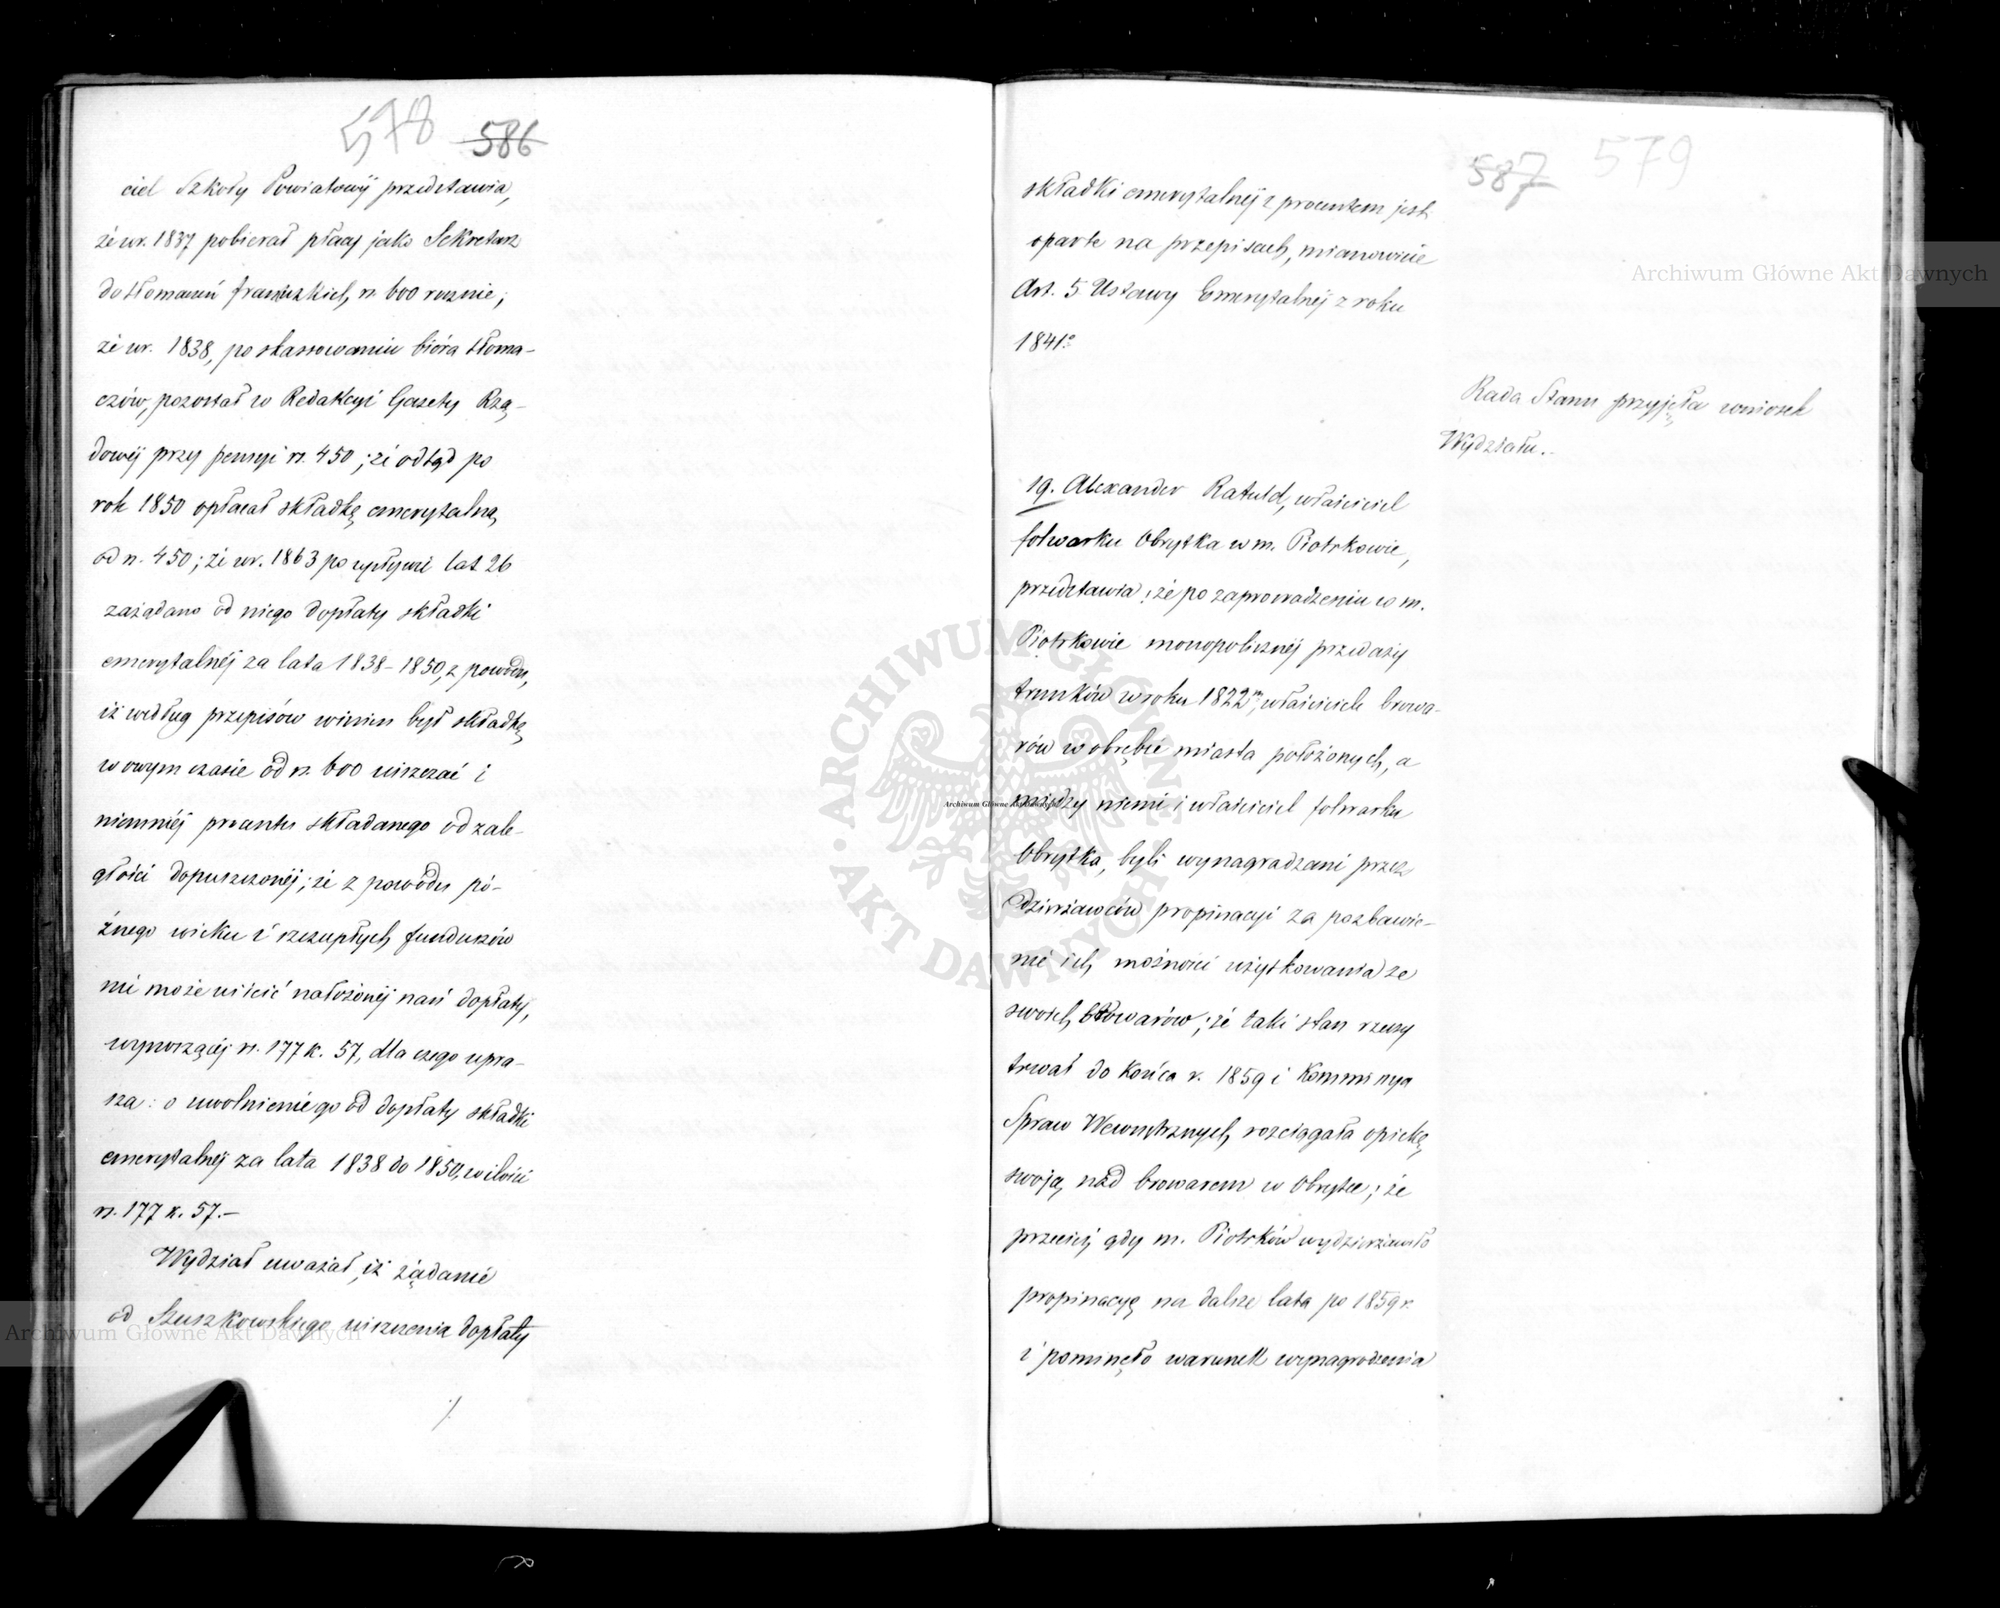 578 586
ciel Szkoły Powiatowéj przedstawia,
że w r. 1837 pobierał płacę jako Sekretarz
do tłomaczeń francuzkich rs. 600 rocznie;
że w r. 1838, po skassowaniu bióra tłoma-
czów, pozostał w Redakcyi Gazety Rzą-
dowéj przy pensyi rs. 450; że odtąd po
rok 1850 opłacał składkę emerytalną
od rs. 450; że w r. 1863 po upływie lat 26
zażądano od niego dopłaty składki
emerytalnéj za lata 1838-1850, z powodu,
iż według przepisów winien był składkę
w owym czasie od rs. 600 uiszczać i
niemniéj procentu składanego od zale-
głości dopuszczonéj; że z powodu pó-
źnego wieku i szczupłych funduszów
nie może uiścić nałożonéj nań dopłaty,
wynoszącéj rs. 177 k. 57, dla czego upra-
sza: o uwolnienie go od dopłaty składki
emerytalnéj za lata 1838 do 1850, w ilości
rs. 177 k. 57.-
Wydział uważał, iż żądanie
od Szuszkowskiego uiszczenia dopłaty
./.
587 579
składki emerytalnéj z procentem jest
oparte na przepisach, mianowicie
Art. 5 Ustawy Emerytalnéj z roku
1841o
Rada Stanu przyjęła wniosek
Wydziału.-
19. Alexander Ratuld, właściciel
folwarku Obrytka w m. Piotrkowie,
przedstawia: że po zaprowadzeniu w m.
Piotrkowie monopolicznéj przedaży
trunków w roku 1822m, właściciele browa-
rów w obrębie miasta położonych, a
między niemi i właściciel folwarku
Obrytka, byli wynagradzani przez
Dzierżawców propinacyi za pozbawie-
nie ich możności użytkowania ze
swoich browarów; że taki stan rzeczy
trwał do końca r. 1859 i Kommissya
Spraw Wewnętrznych rozciągała opiekę
swoję nad browarem w Obrytce; że
przecież gdy m. Piotrków wydzierżawiło
propinacyę na dalsze lata po 1859 r.
i pominęło warunek wynagrodzenia
Archiwum Główne Akt Dawnych
Archiwum Główne Akt Dawnych
Archiwum Główne Akt Dawnych
ARCHIWUM GŁÓWNE AKT DAWNYCH